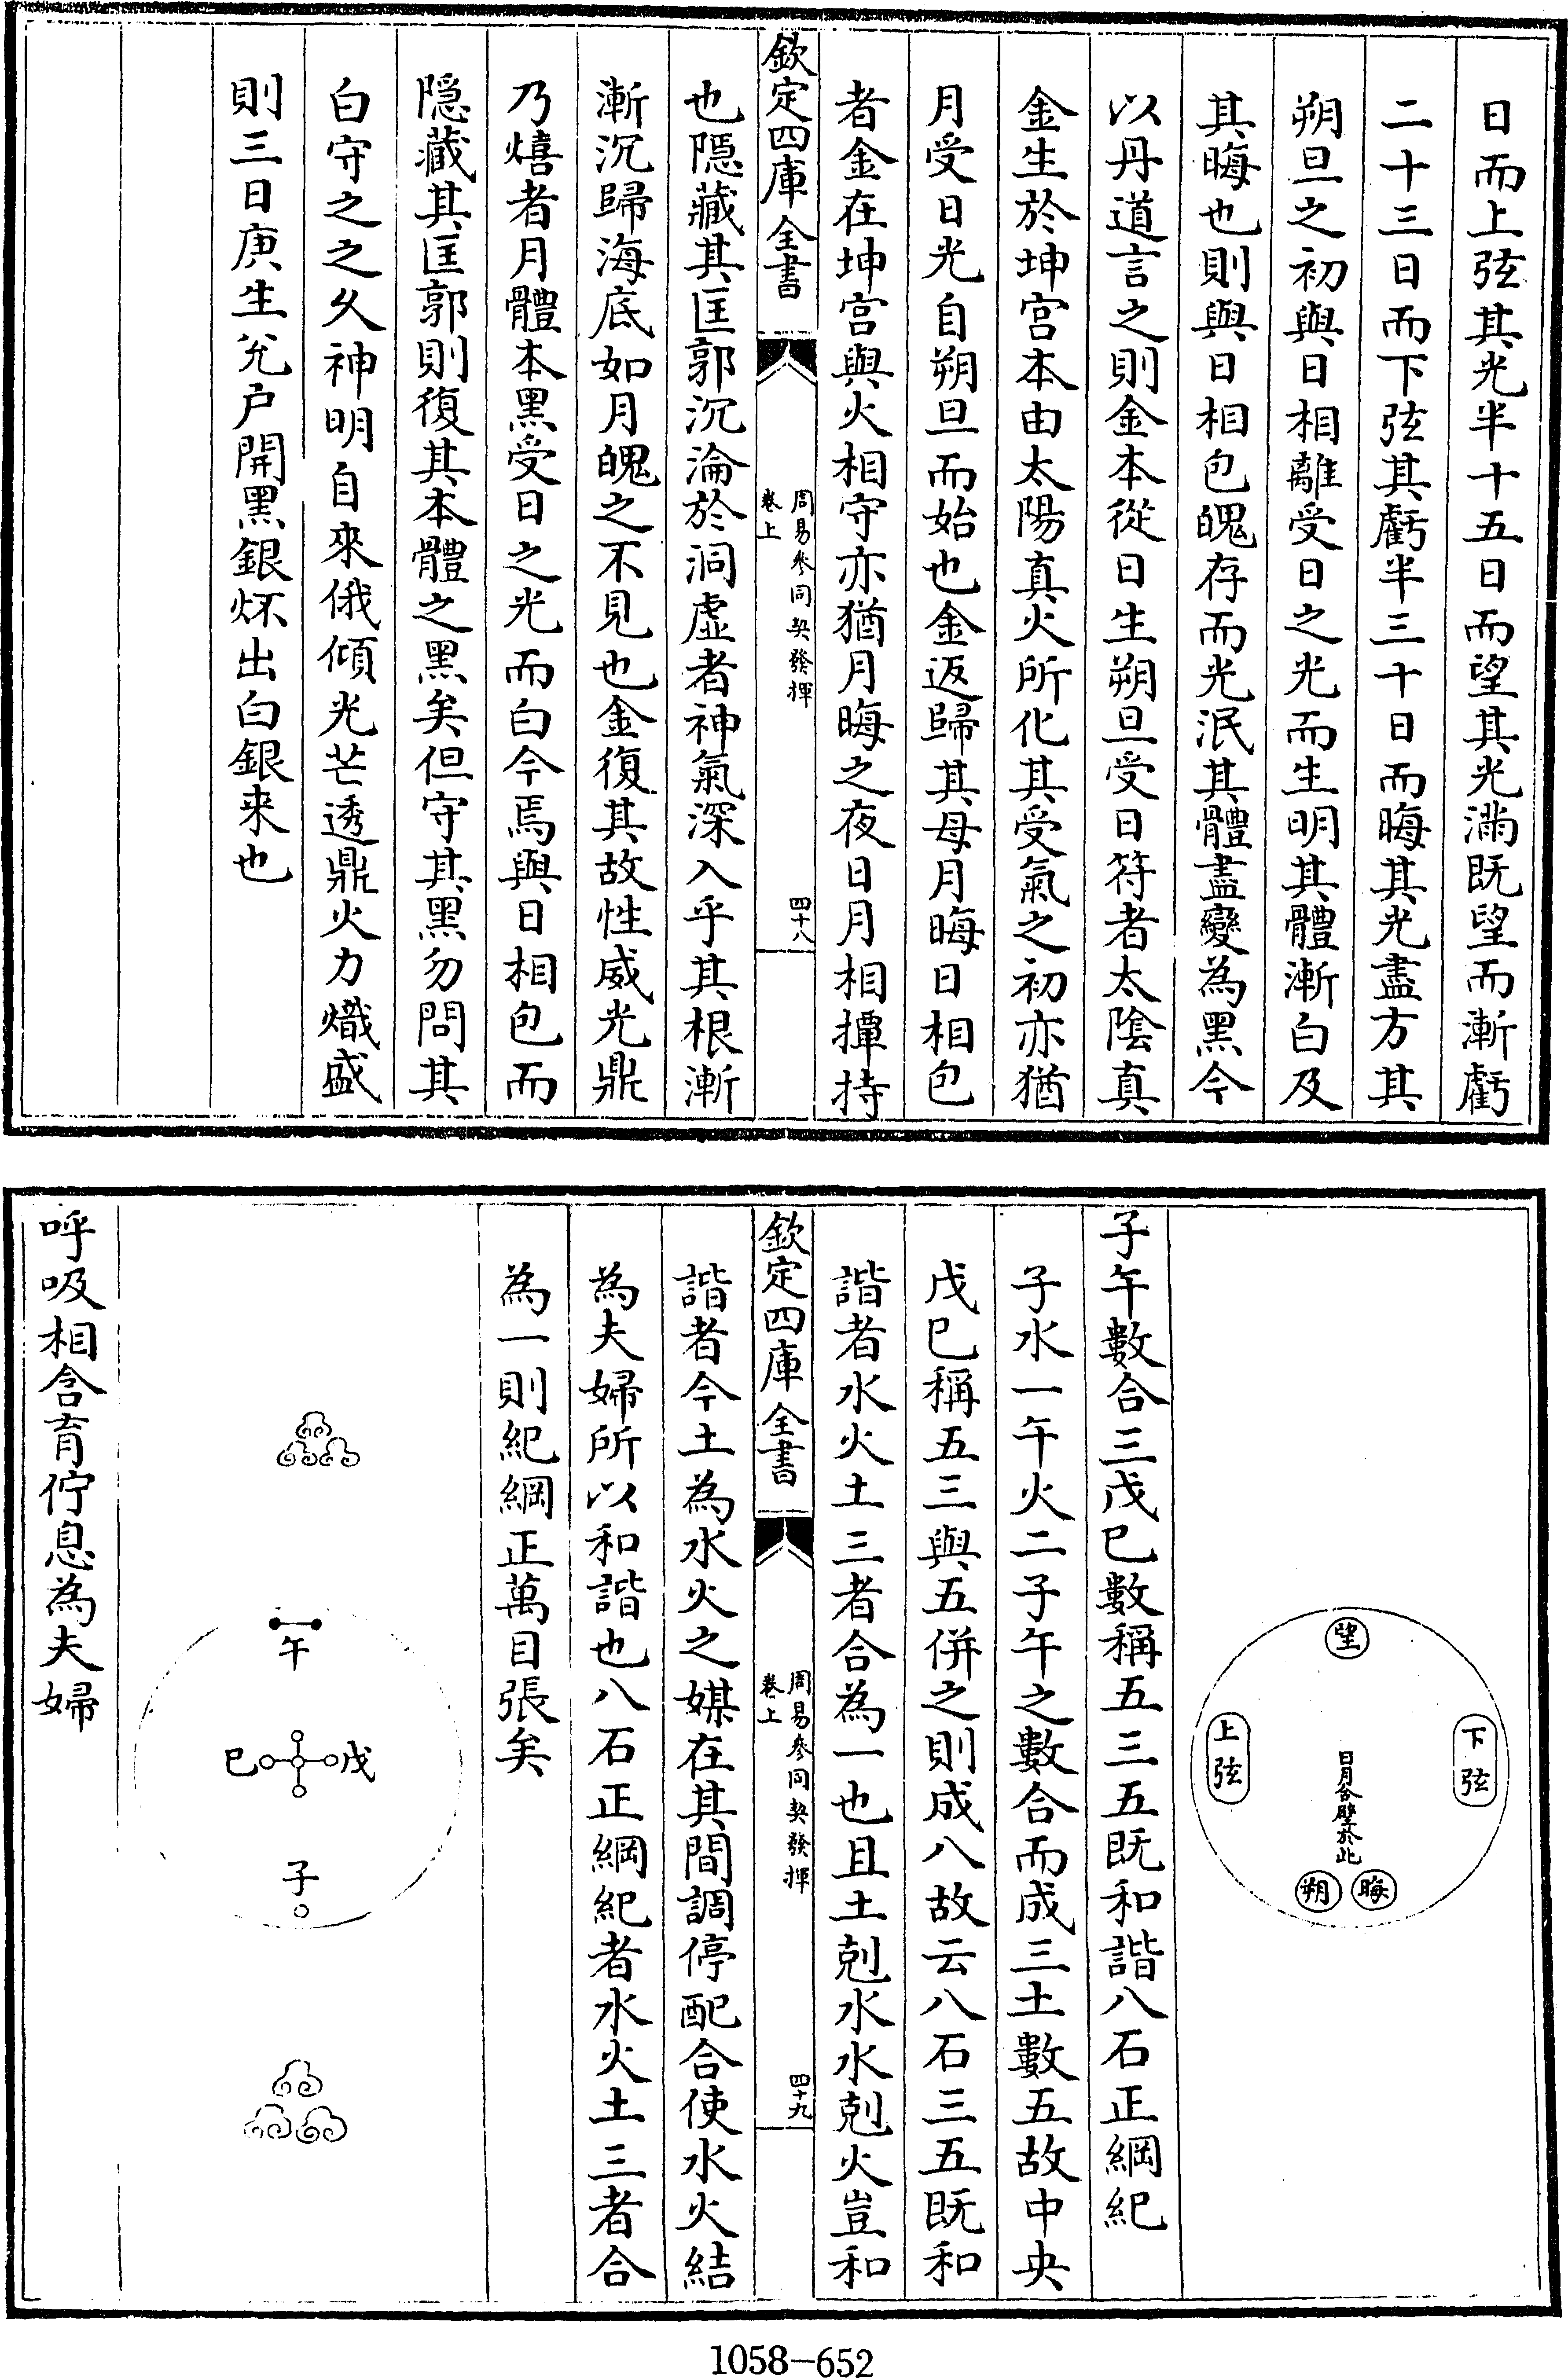 日而上弦其光半十五日而望其光滿既望而漸虧
二十三日而下弦其虧半三十日而晦其光盡方其
朔旦之初與日相離受日之光而生明其體漸白及
其晦也則與日相包魄存而光泯其體盡變為黑今
以丹道言之則金本從日生朔旦受日符者太隂真
金生於坤宫本由太陽真火所化其受氣之初亦猶
月受日光自朔旦而始也金返歸其母月晦日相包
者金在坤宫與火相守亦猶月晦之夜日月相撢持
欽定四庫全書
周易參同契發揮
卷上
四十八
也隱藏其匡郭沉淪於洞虚者神氣深入乎其根漸
漸沉歸海底如月魄之不見也金復其故性威光鼎
乃熺者月體本黑受日之光而白今焉與日相包而
隐藏其匡郭則復其本體之黑矣但守其黑勿問其
白守之之久神明自來俄傾光芒透鼎火力熾盛
則三日庚生兊户開黑銀炋出白銀来也
望
下弦
上弦
日月合壁於此
晦
朔
子午數合三戊巳數稱五三五既和諧八石正綱紀
子水一午火二子午之數合而成三土數五故中央
戊巳稱五三與五併之則成八故云八石三五既和
諧者水火土三者合為一也且土剋水水剋火豈和
欽定四庫全書
周易參同契發揮
卷上
四十九
諧者今土為水火之媒在其間調停配合使水火結
為夫婦所以和諧也八石正綱紀者水火土三者合
為一則紀綱正萬目張矣
午
戊
巳
子
呼吸相含育佇息為夫婦
1058-652